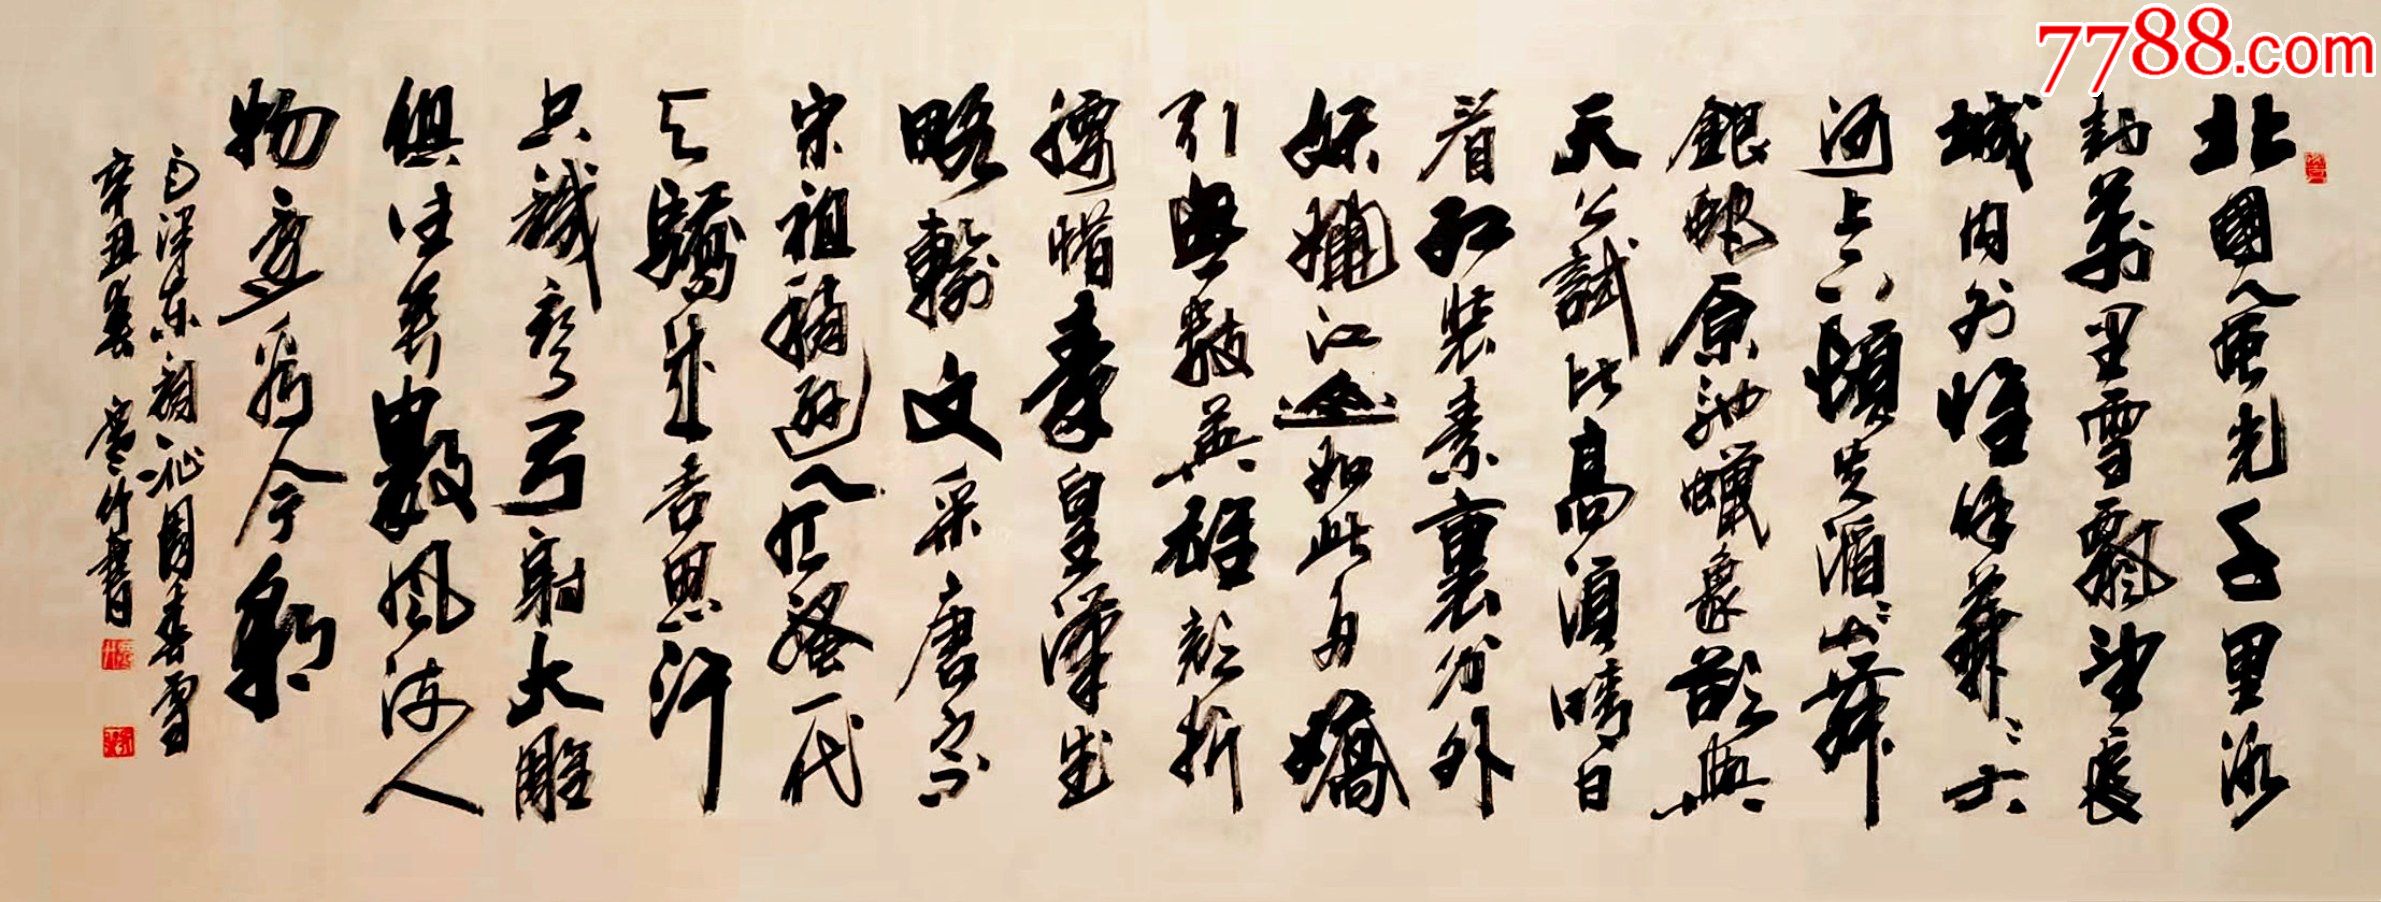 7788.com
北國風光千里冰
封萬里雪飄望長
城内外惟餘莽々大
河上下頓失滔々山舞
銀蛇原馳蠟象欲與
天公試比高須晴日
看红裝素裹分外
妖嬈江山如此多嬌
引無數英雄競折
腰惜秦皇漢武
略輸文采唐宗
宋祖稍遜風騷一代
天驕成吉思汗
只識彎弓射大雕
俱往矣數風流人
物還看今朝
毛澤東詞沁園春雪
辛丑春 寒竹書